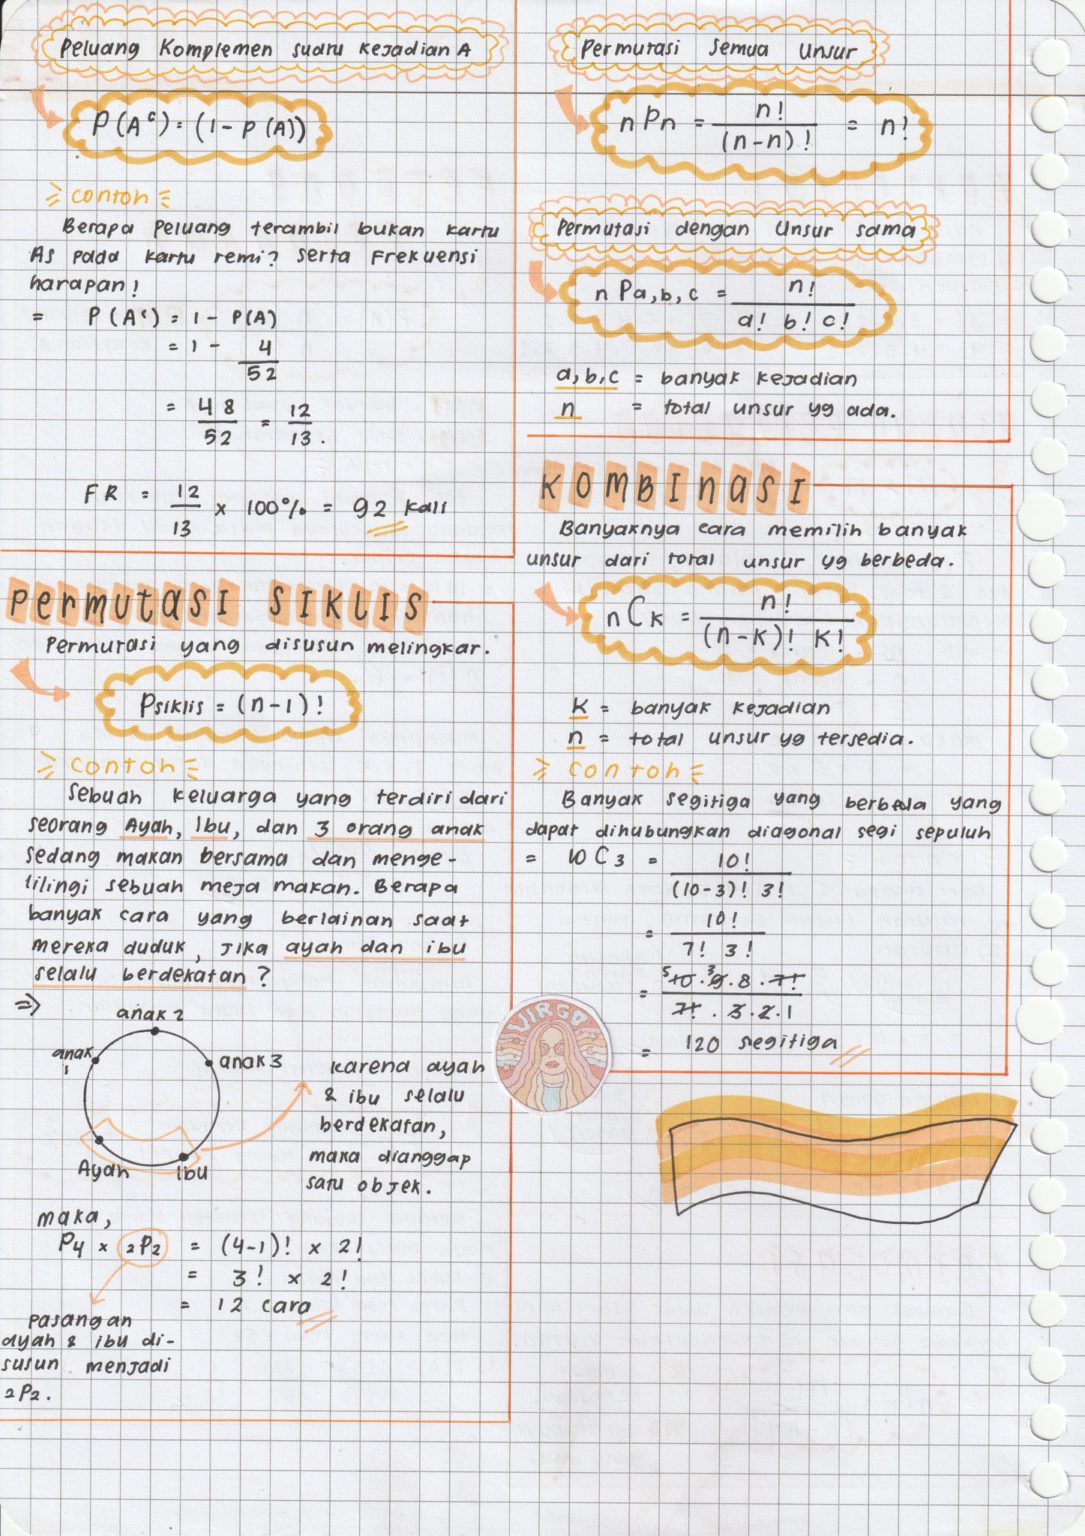 Peluang Komplemen suatu kejadian A
P(Aᶜ) = (1 - P(A))
contoh
Berapa peluang terambil bukan kartu
As pada kartu remi? serta Frekuensi
harapan!
= P(Aᶜ) = 1 - P(A)
= 1 - 4/52
= 48/52 = 12/13.
FR = 12/13 x 100% = 92 kali
Permutasi Siklis
Permutasi yang disusun melingkar.
Psiklis = (n-1)!
contoh
Sebuah keluarga yang terdiri dari
seorang Ayah, Ibu, dan 3 orang anak
sedang makan bersama dan menge-
lilingi sebuah meja makan. Berapa
banyak cara yang berlainan saat
mereka duduk, jika ayah dan ibu
selalu berdekatan?
⇒
anak 2
anak 1
anak 3
Ayah
ibu
karena ayah
& ibu selalu
berdekatan,
maka dianggap
satu objek.
maka,
P4 x 2P2 = (4-1)! x 2!
= 3! x 2!
= 12 cara
pasangan
ayah & ibu di-
susun menjadi
2P2.
Permutasi semua unsur
nPn = n!/(n-n)! = n!
Permutasi dengan Unsur sama
nPa,b,c = n!/a! b! c!
a,b,c = banyak kejadian
n = total unsur yg ada.
KOMBINASI
Banyaknya cara memilih banyak
unsur dari total unsur yg berbeda.
nCk = n!/(n-k)! k!
k = banyak kejadian
n = total unsur yg tersedia.
contoh
Banyak segitiga yang berbeda yang
dapat dihubungkan diagonal segi sepuluh
= 10C3 = 10!/(10-3)! 3!
= 10!/7! 3!
= 5 10 . 3 9 . 8 . 7!/7! . 3 . 2 . 1
= 120 segitiga
VIRGO